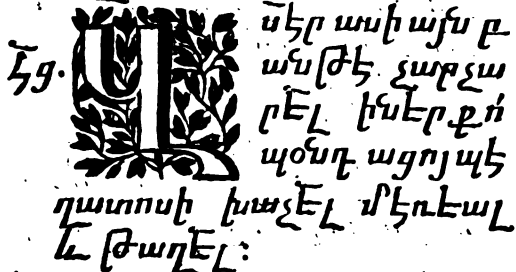 Էց. Վ սէր ասի այն բ
անթէ չարչա
րէլ ինէրքո
պօնդ ացոյ պէ
ղատոսի խաչէլ մէռէալ
և թաղէլ: